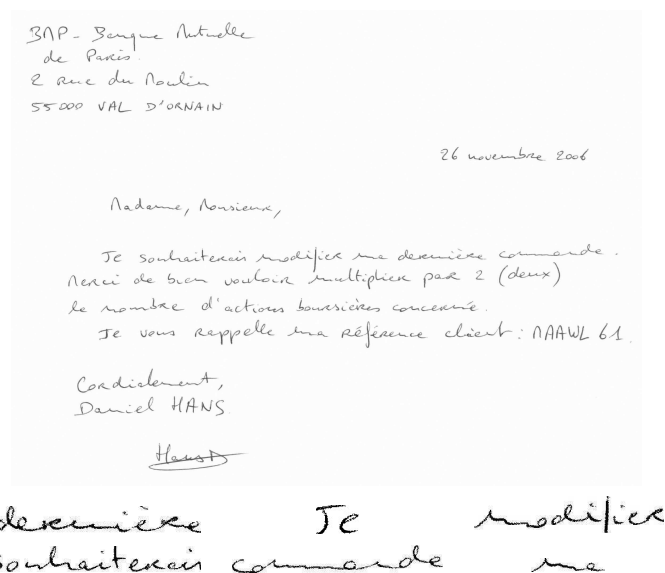 BMP - Banque Mutuelle
de Paris
2 rue du Moulin
55000 VAL D'ORNAIN
26 novembre 2006
Madame, Monsieur,
Je souhaiterais modifier ma dernière commande.
Merci de bien vouloir multiplier par 2 (deux)
le nombre d'actions boursières concerné.
Je vous rappelle ma référence client : MAAWL 61.
Cordialement,
Daniel HANS
Hans D
dernière Je modifier
souhaiterais commande ma